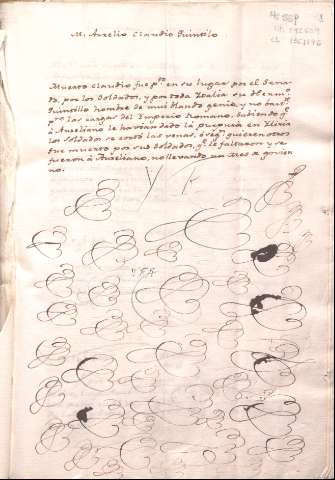 M. Aurelio Claudio Quintilo
Muerto Claudio fue pto en su lugar por el Sena-
do, por los Soldados, y por toda Ytalia su Herno
Quintilo hombre de mui blando genio, y no bastte
pra las cargas del Imperio Romano. Sabiendo qe
à Aureliano le havian dado la purpura en Iliria
los Soldados se cortó las venas, ó segn quieren otros
fue muerto por sus Soldados, qe le faltaron y se
fueron à Aureliano, no llevando un mes de govier-
no.